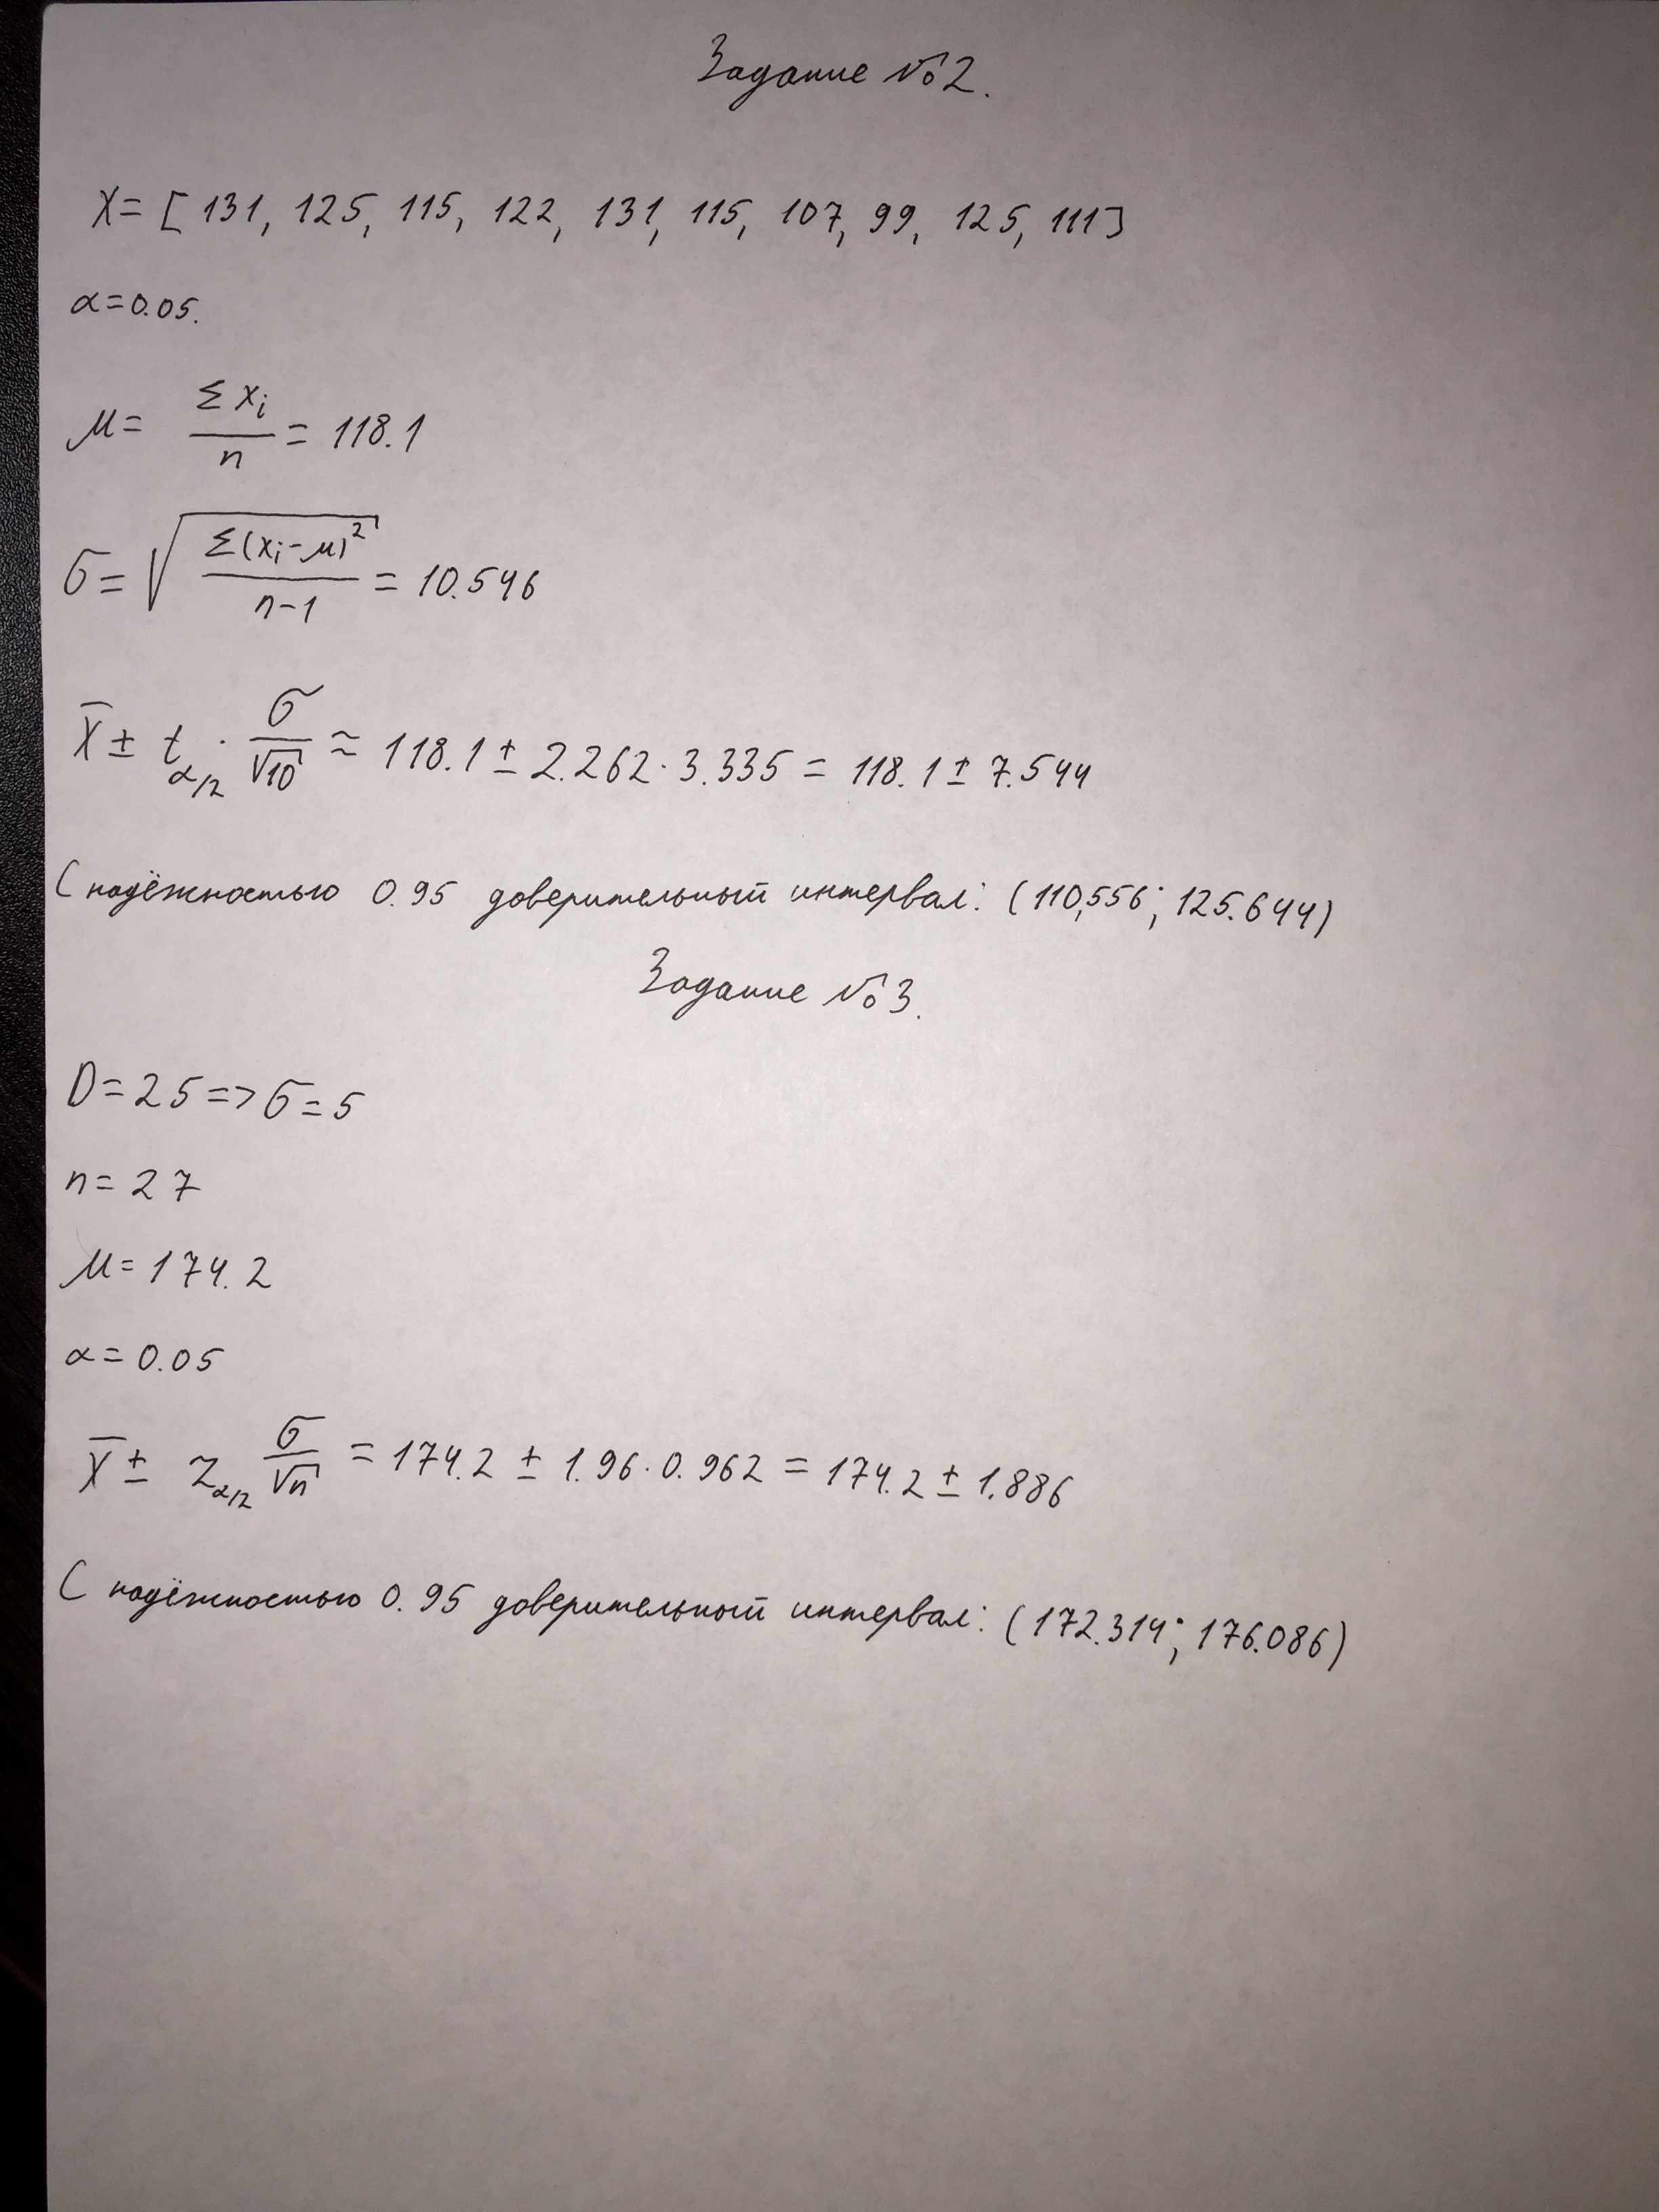 Задание №2.
X = [131, 125, 115, 122, 131, 115, 107, 99, 125, 111]
α=0.05.
μ = Σ xᵢ / n = 118.1
σ = √(Σ(xᵢ-μ)² / n-1) = 10.546
X̄ ± t_α/2 · σ/√10 ≈ 118.1 ± 2.262 · 3.335 = 118.1 ± 7.544
С надёжностью 0.95 доверительный интервал: (110,556; 125.644)
Задание №3.
D=25 => σ=5
n=27
μ=174.2
α=0.05
X̄ ± Z_α/2 σ/√n = 174.2 ± 1.96 · 0.962 = 174.2 ± 1.886
С надёжностью 0.95 доверительный интервал: (172.314; 176.086)